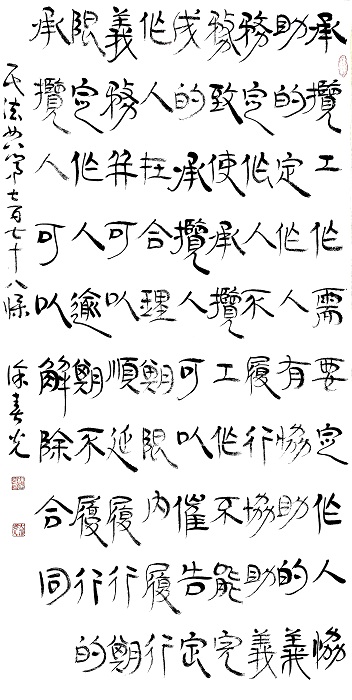 承攬工作需要定作人協
助的定作人有協助的義
務定作人不履行協助義
務致使承攬工作不能完
成的承攬人可以催告定
作人在合理期限内履行
義務并可以順延履行期
限定作人逾期不履行的
承攬人可以解除合同
民法典第七百七十八條 徐春光